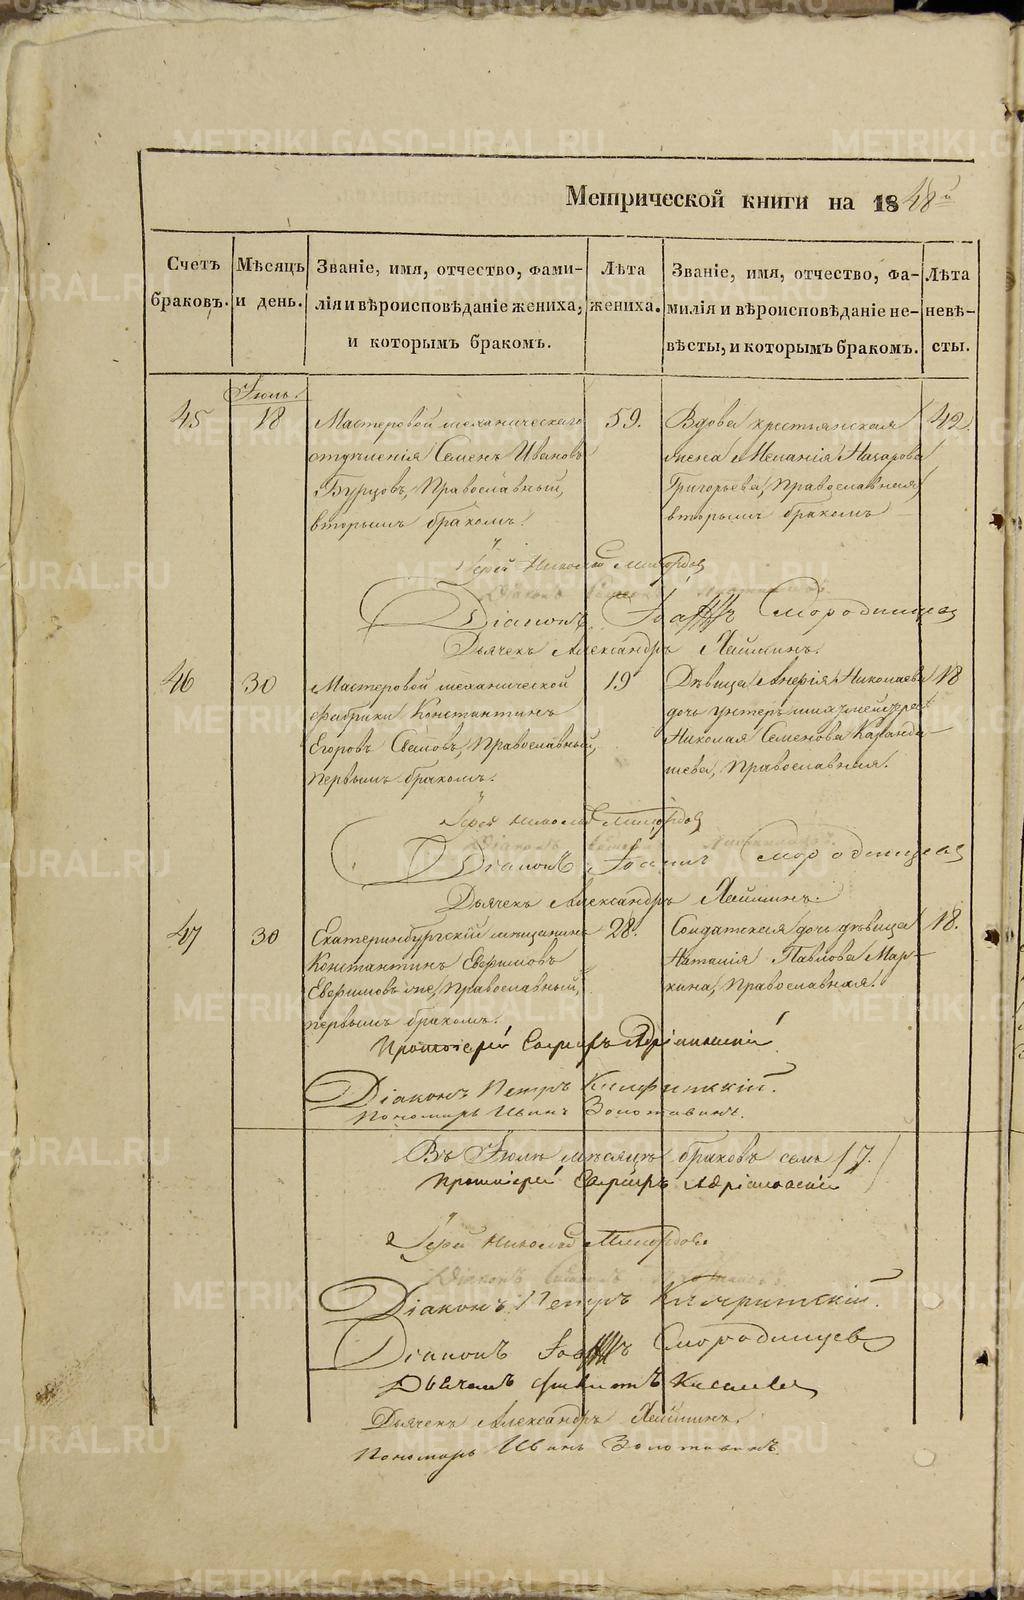 Метрической книги на 1848й
Счетъ браковъ.
Мѣсяцъ и день.
Званіе, имя, отчество, фами-
лія и вѣроисповѣданіе жениха,
и которымъ бракомъ.
Лѣта жениха.
Званіе, имя, отчество, фа-
милія и вѣроисповѣданіе не-
вѣсты, и которымъ бракомъ.
Лѣта невѣ-
сты.
Іюль.
45
18
Мастеровой механическаго
отдѣленія Семенъ Ивановъ
Бурцовъ, Православный,
вторымъ бракомъ.
59.
Вдова крестьянская
жена Меланія Назарова
Григорьева, Православная,
вторымъ бракомъ
42
Іерей Николай
Діаконъ Смородинцевъ
Дьячекъ Александръ
46
30
Мастеровой механической
фабрики Константинъ
Егоровъ Православный,
первымъ бракомъ.
19
Дѣвица Николаева
дочь унтеръ шихтмейстера
Николая Семенова Каранда-
шева, Православная.
18
Іерей Николай
Діаконъ Іоаннъ Смородинцевъ
Дьячекъ Александръ
47
30
Екатеринбургскій мѣщанинъ
Константинъ Евфимовъ
Евфимовъ же, Православный,
первымъ бракомъ.
28.
Солдатская дочь дѣвица
Наталія Павлова Мар-
кина, Православная.
18.
Протоіерей Адріановскій
Діаконъ Петръ
Пономарь Иванъ Золотавинъ.
Въ Іюлѣ мѣсяцѣ браковъ семь /7./
Протоіерей Адріановскій
Іерей Николай
Діаконъ Петръ
Діаконъ Смородинцевъ
Дьячекъ Киселевъ
Дьячекъ Александръ
Пономарь Иванъ Золотавинъ.
METRIKI.GASO-URAL.RU